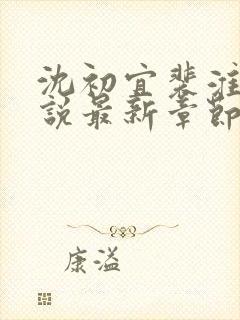 沈初宜裴淮
說最新章節
康溢